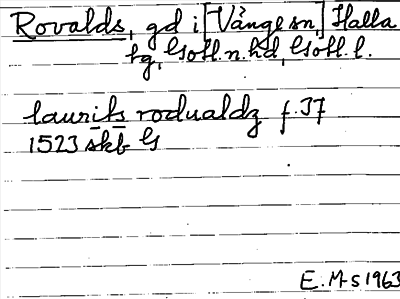 Rovalds, gd i [Vänge sn,] Halla
tg, Gotl. n. hd, Gotl. l.
laurits rodualdz f. 37
1523 skb G
E. M-s 1963